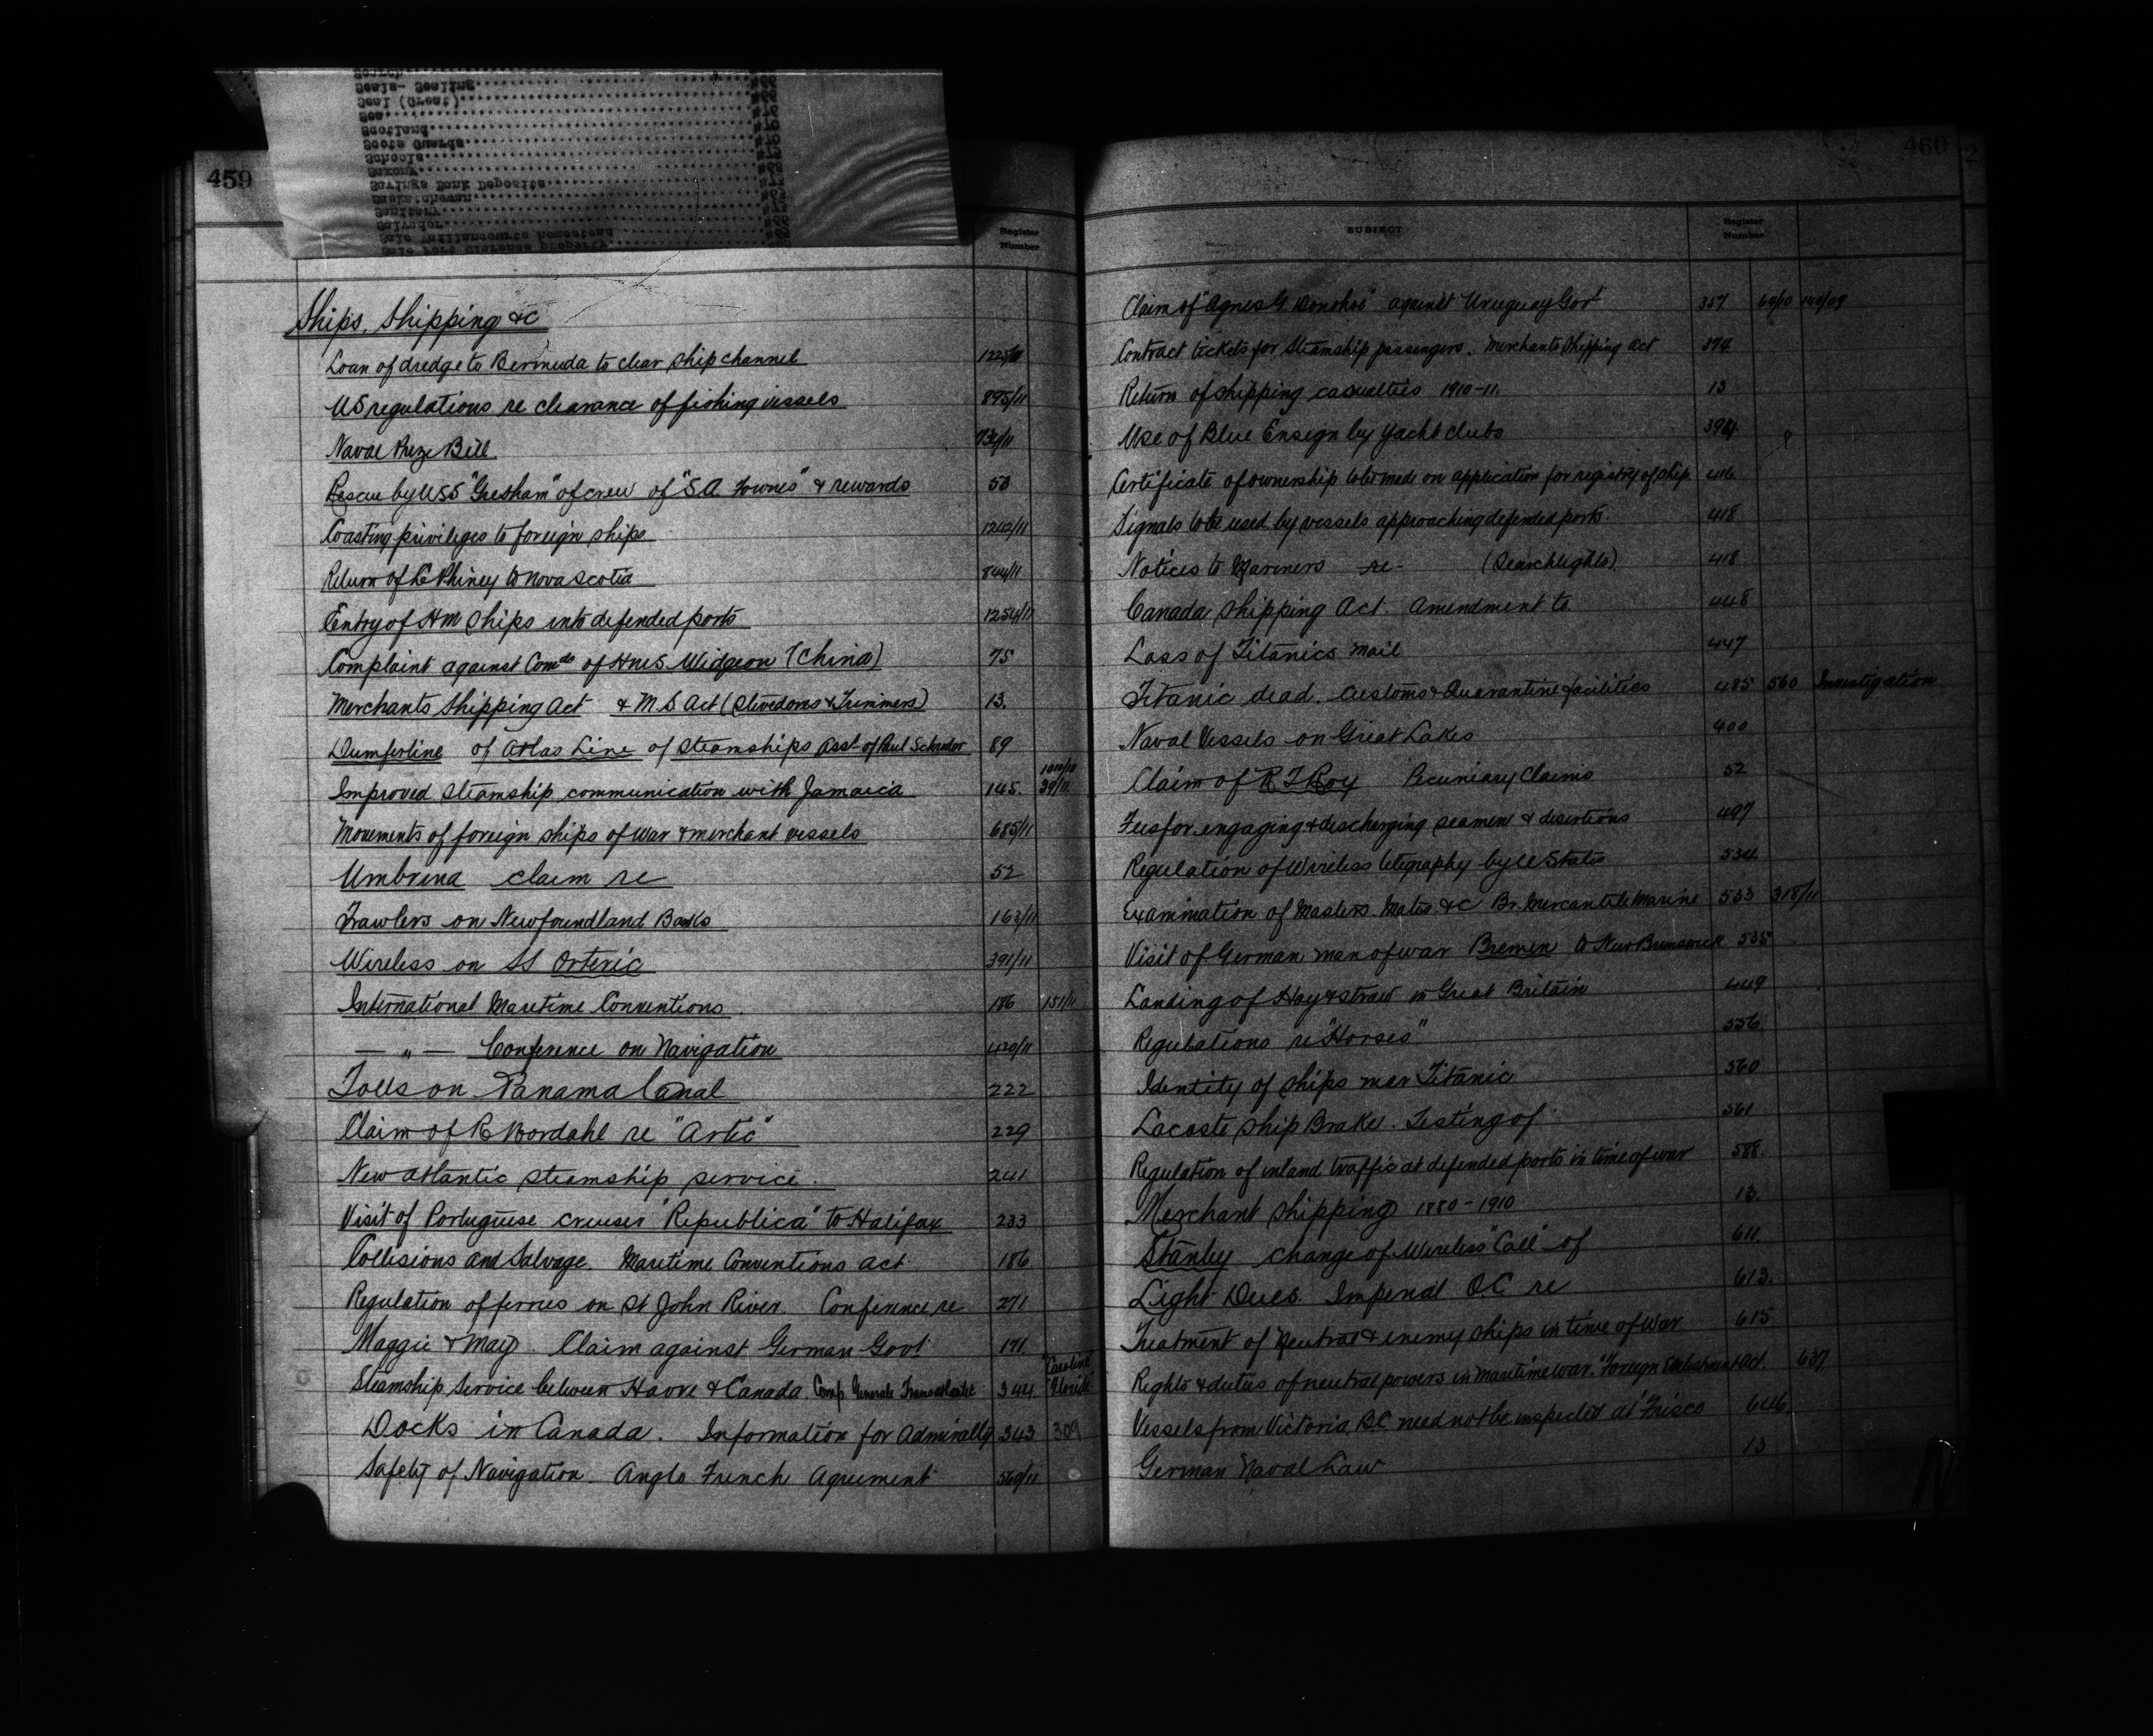 459
Register
Number
Ships, Shipping &c
Loan of dredge to Bermuda to clear ship channel 1225/11
US regulations re clearance of fishing vessels 895/11
Naval Prize Bill 734/11
Rescue by USS "Gresham" of crew of "S.A. Fownes" & rewards 53
Coasting privileges to foreign ships 1242/11
Return of Phiney to Nova Scotia 844/11
Entry of HM Ships into defended ports 1254/11
Complaint against Com of HMS Widgeon (China) 75
Merchants Shipping Act & M S Act (Stevedores & Trimmers) 13.
Dumferline of Atlas Line of Steamships Asst of Paul Schrader 89
Improved steamship communication with Jamaica 145. 39/11
Movements of foreign ships of war & merchant vessels 685/11
Umbrina claim re 52
Trawlers on Newfoundland Banks 163/11
Wireless on SS Orteric 391/11
International Maritime Conventions 186 151/11
— " — Conference on Navigation 420/11
Tolls on Panama Canal 222
Claim of R Bordahl re "Artic" 229
New Atlantic steamship service. 241
Visit of Portuguese cruiser "Republica" to Halifax 233
Collisions and Salvage. Maritime Conventions Act 186
Regulation of ferries on St John River. Conference re 271
Maggie & May. Claim against German Govt 171
Steamship Service between Havre & Canada. Comp Generale Transatlantic 344 "Caroline" "Floride"
Docks in Canada. Information for Admiralty 343 309
Safety of Navigation. Anglo French Agreement 560/11
460
SUBJECT
Register
Number
Claim of "Agnes G. Donohoe" against Uruguay Govt 357 64/10 140/09
Contract tickets for Steamship passengers. Merchants Shipping Act 374
Return of shipping casualties 1910-11. 13
Use of Blue Ensign by yacht clubs 394
Certificate of ownership to be made on application for registry of ship. 416
Signals to be used by vessels approaching defended ports. 418
Notices to Mariners re- (Searchlights). 418
Canada Shipping Act. Amendment to 448
Loss of Titanics mail 447
Titanic dead. Customs & Quarantine facilities 485 560 Investigation
Naval Vessels on Great Lakes 400
Claim of R T Roy Pecuniary Claims 52
Fees for engaging & discharging seamen & desertions 497
Regulation of Wireless telegraphy by U States 534
Examination of Masters Mates &c Br. Mercantile Marine 533 318/11
Visit of German man of war Bremen to New Brunswick 535
Landing of Hay & straw in Great Britain 449
Regulations re "Horses" 556
Identity of ships near Titanic 560
Lacoste Ship Brake. Testing of 561
Regulation of inland traffic at defended ports in time of war 588.
Merchant Shipping 1880-1910 13
Stanley change of Wireless "Call" of 611
Light Dues. Imperial O.C. re 613.
Treatment of Neutral & enemy ships in time of War 615
Rights & duties of neutral powers in Maritime war. "Foreign Enlistment Act. 637
Vessels from Victoria, B.C. need not be inspected at Frisco 646
German Naval Law 13